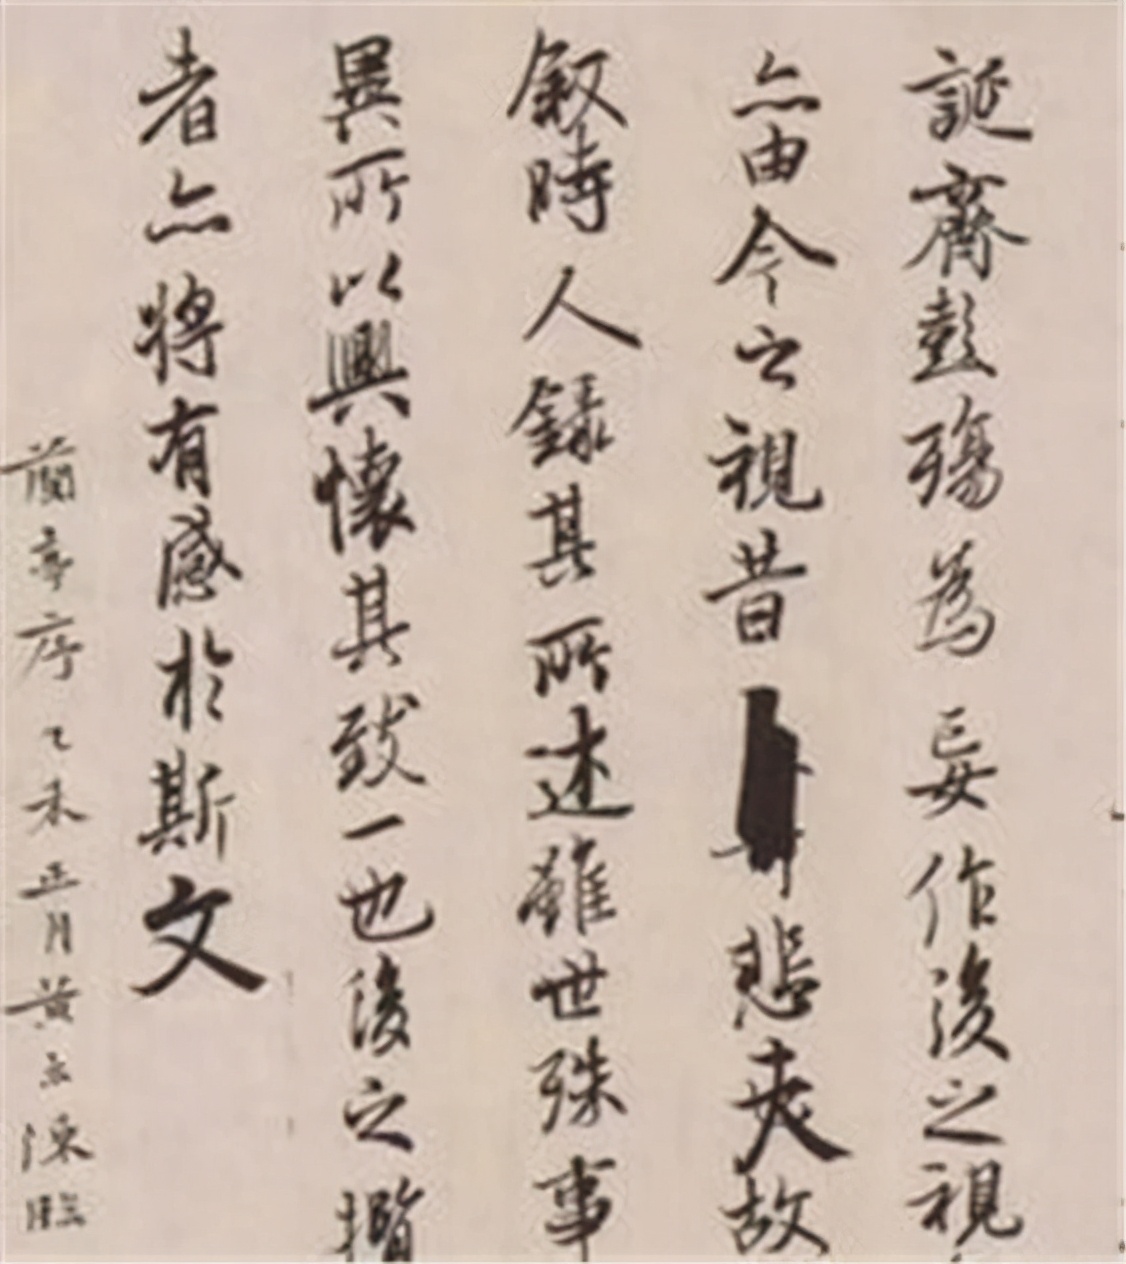 誕齊彭殤為妄作後之視
亦由今之視昔悲夫故
敘時人錄其所述雖世殊事
異所以興懷其致一也後之攬
者亦將有感於斯文
蘭亭序乙未正月黃立深臨